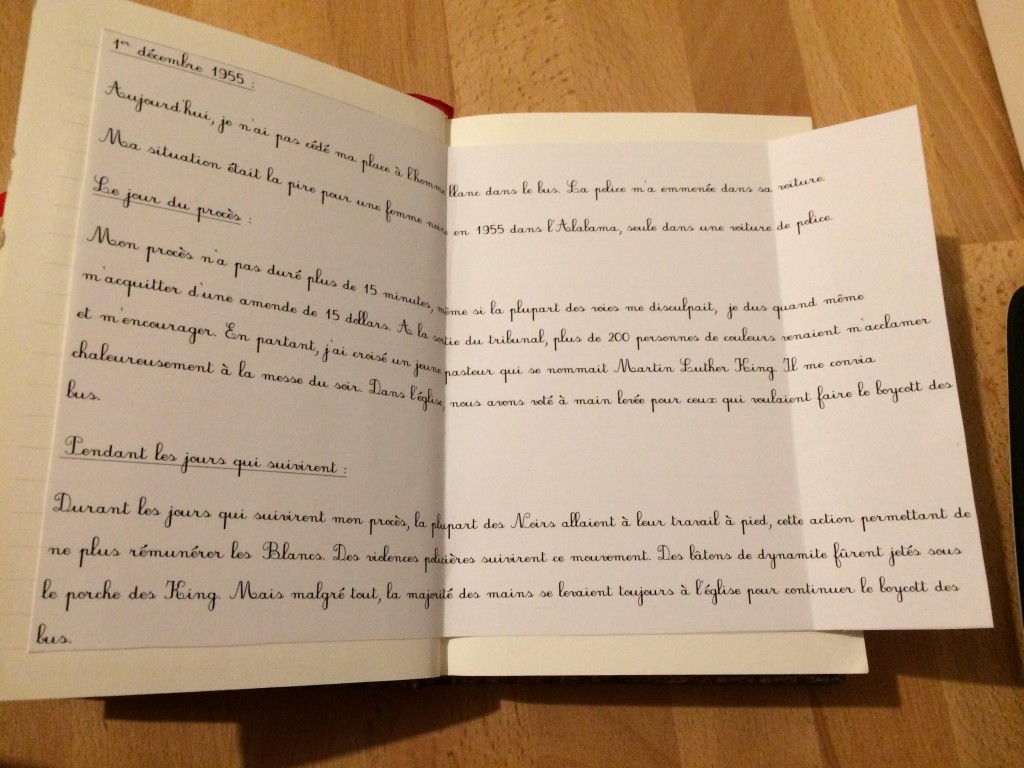 1er décembre 1955 :
Aujourd'hui, je n'ai pas cédé ma place à l'homme blanc dans le bus. La police m'a emmenée dans sa voiture.
Ma situation était la pire pour une femme noire en 1955 dans l'Alabama, seule dans une voiture de police.
Le jour du procès :
Mon procès n'a pas duré plus de 15 minutes, même si la plupart des voies me disculpait, je dus quand même
m'acquitter d'une amende de 15 dollars. A la sortie du tribunal, plus de 200 personnes de couleurs venaient m'acclamer
et m'encourager. En partant, j'ai croisé un jeune pasteur qui se nommait Martin Luther King. Il me convia
chaleureusement à la messe du soir. Dans l'église, nous avons voté à main levée pour ceux qui voulaient faire le boycott des
bus.
Pendant les jours qui suivirent :
Durant les jours qui suivirent mon procès, la plupart des Noirs allaient à leur travail à pied, cette action permettant de
ne plus rémunérer les Blancs. Des violences policières suivirent ce mouvement. Des bâtons de dynamite fûrent jetés sous
le porche des King. Mais malgré tout, la majorité des mains se levaient toujours à l'église pour continuer le boycott des
bus.